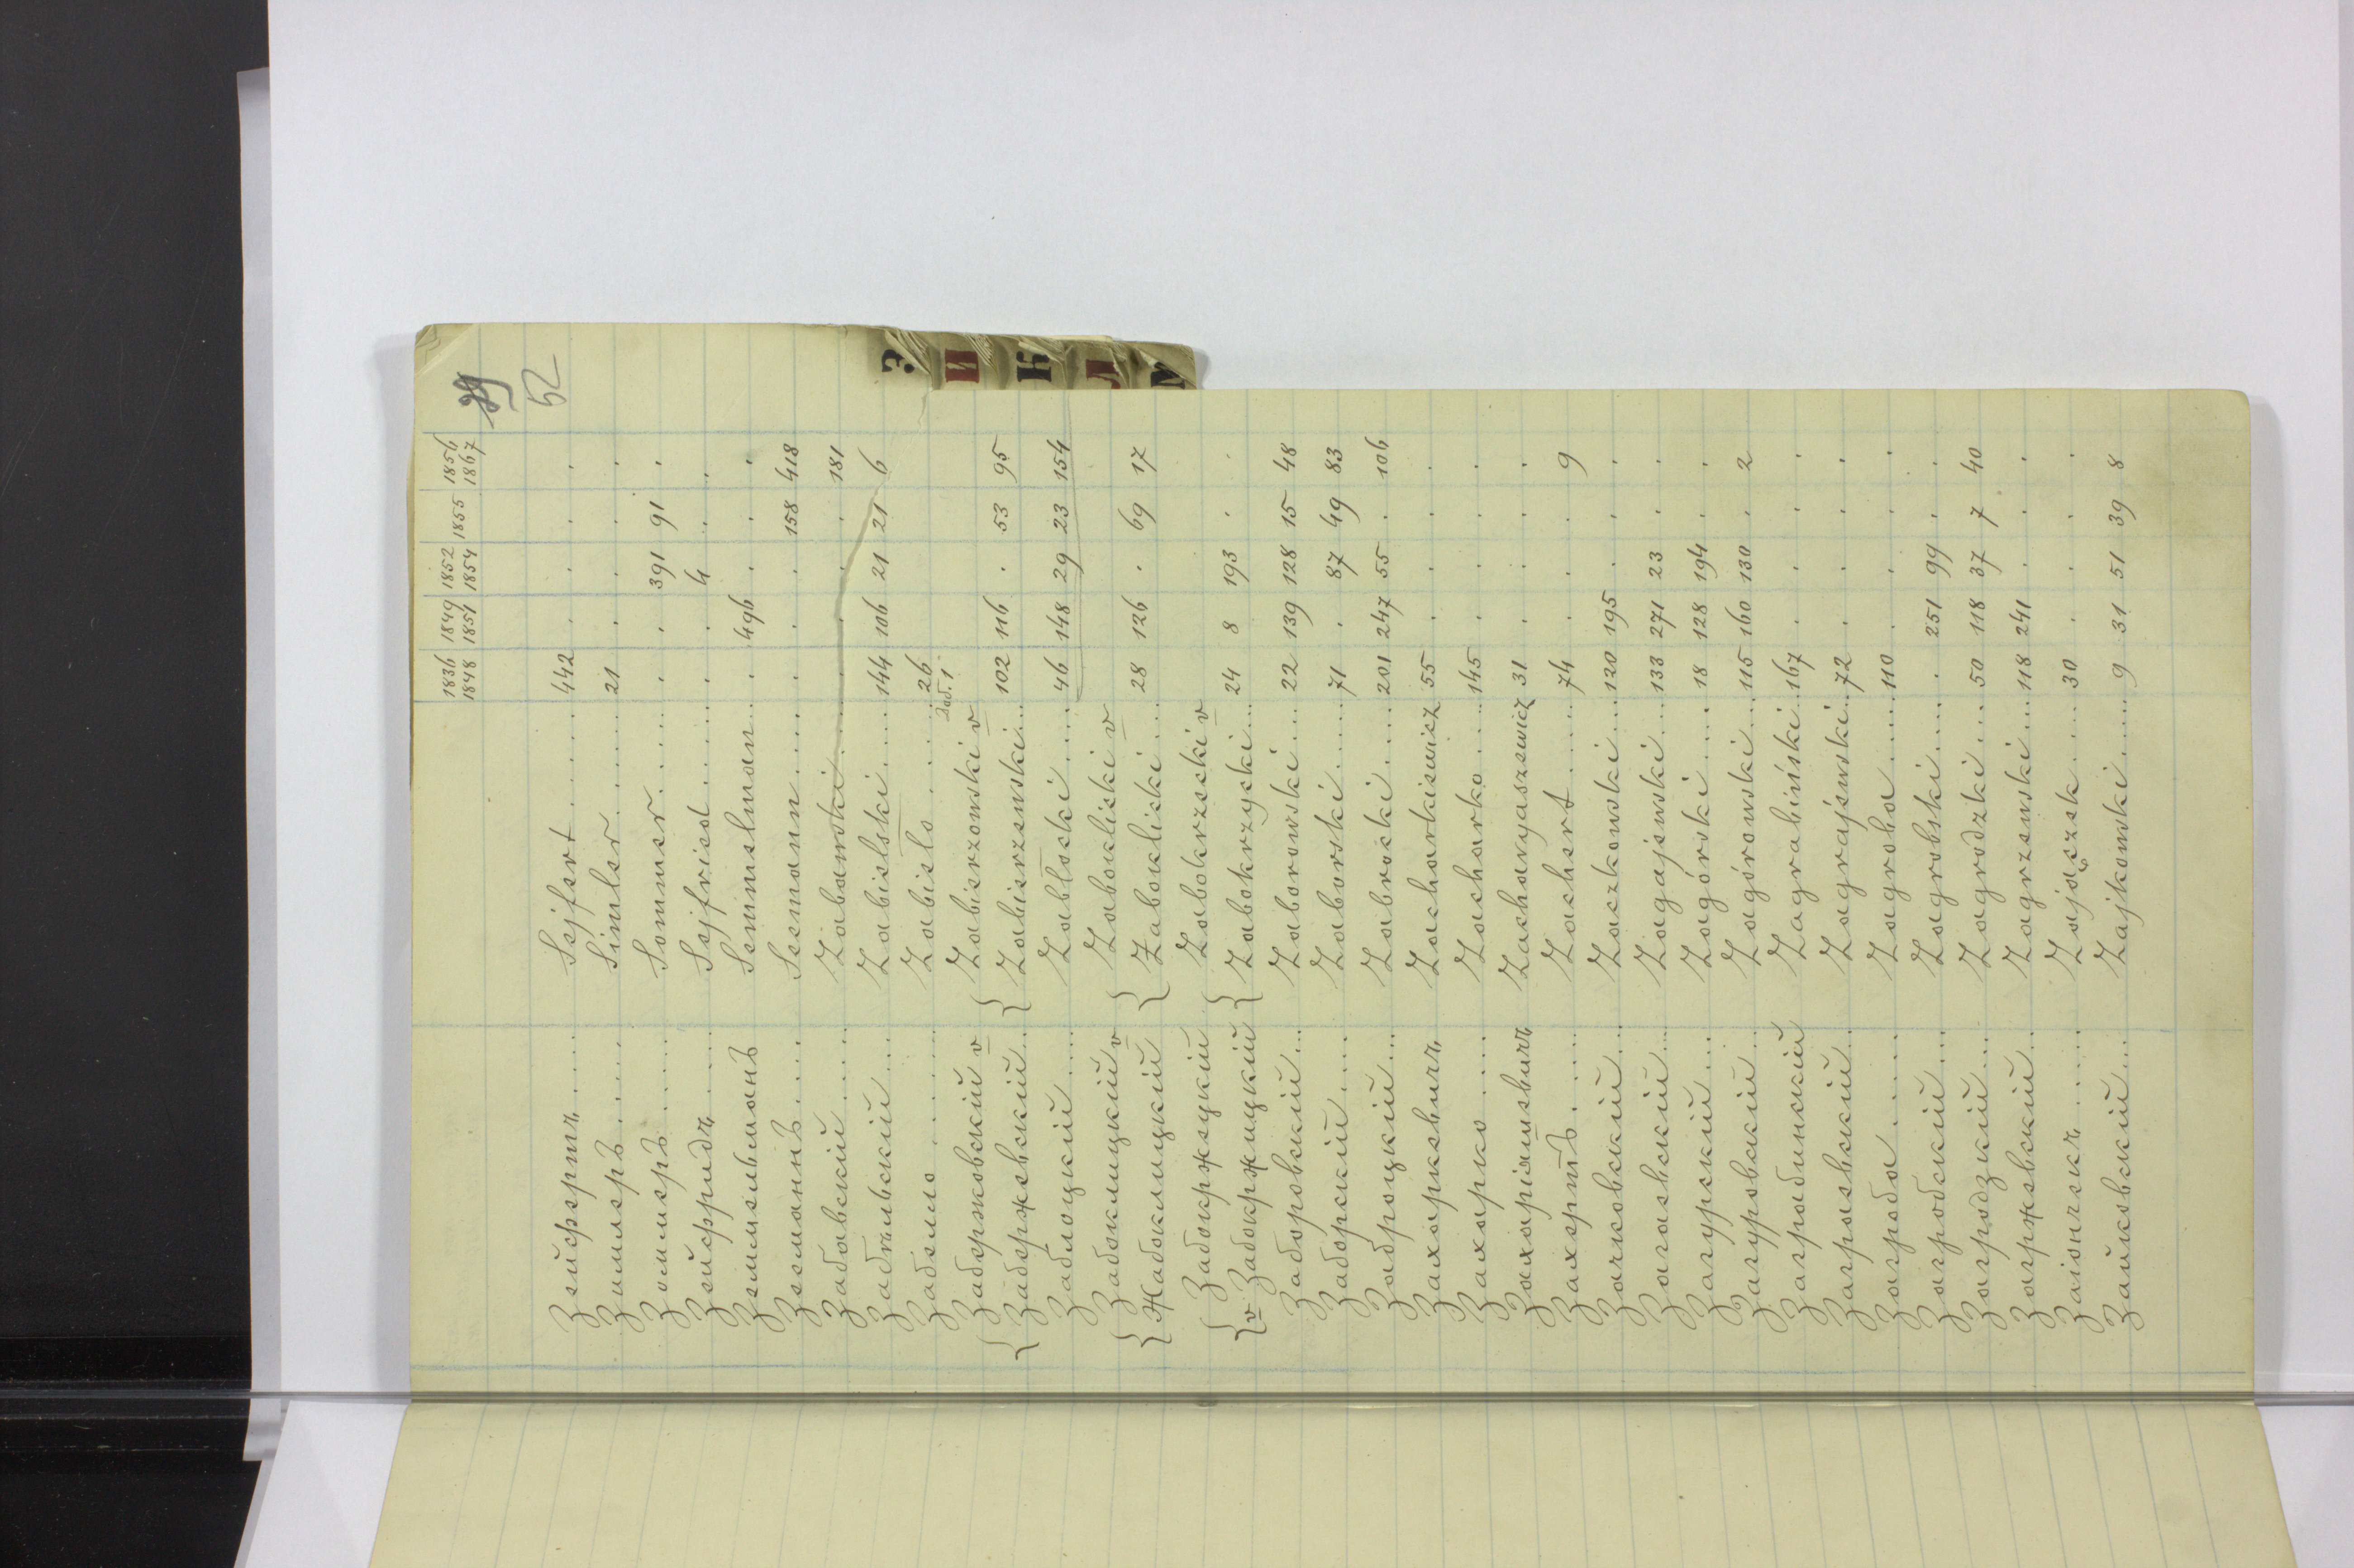 29
52
1836 1848 | 1849 1851 | 1852 1854 | 1855 | 1856 1867
Зейфертъ ..... Sejfert ..... 442 . . . .
Зимлеръ ..... Simler ..... 21 . . . .
Зоммеръ ..... Sommer ..... . . 391 91 .
Зейффридъ ..... Sejfried ..... . . 4 . .
Земмельманъ Semmelman .. . 496 . . .
Зееманнъ ..... Seemann .... . . . 158 418
Забавскій .... Zabawski .... . . . . 181
Забѣльскій ... Zabielski .... 144 106 21 21 6
Забело ...... Zabielo ..... 26
Заб. 1
{ Забержовскій v { Zabierzowski v
Забержевскій .. Zabierzewski ... 102 116 . 53 95
Заблоцкій .... Zabłocki .... 46 148 29 23 154
{ Забоклицкій v { Zaboklicki v
Жабоклицкій Żaboklicki ... 28 126 . 69 17
{ Забокржецкій { Zabokrzecki v
v Забокржицкій Zabokrzycki ... 24 8 193 . .
Заборовскій ... Zaborowski .... 22 139 128 15 48
Заборскій .... Zaborski ..... 71 . 87 49 83
Заброцкій .... Zabrocki .... 201 247 55 . 106
Захаркевичъ Zacharkiewicz 55 . . . .
Захарко ..... Zacharko ..... 145 . . . .
Захаріяшевичъ Zacharyaszewicz 31 . . . .
Захертъ ..... Zachert ..... 74 . . . 9
Зачковскій ... Zaczkowski ... 120 195 . . .
Загаевскій ... Zagajewski ... 133 271 23 . .
Загурскій .... Zagórski .... 18 128 194 . .
Загуровскій ... Zagórowski ... 115 160 130 . 2
Заграбинскій Zagrabiński .. 167 . . . .
Заграевскій .. Zagrajewski .. 72 . . . .
Загроба ..... Zagroba ..... 110 . . . .
Загробскій .... Zagrobski .... . 251 99 . .
Загродзкій ... Zagrodzki ... 50 118 37 7 40
Загржевскій .. Zagrzewski ... 118 241 . . .
Заіончекъ .... Zajączek .... 30 . . . .
Зайковскій ... Zajkowski .... 9 31 51 39 8
З
И
К
Л
М